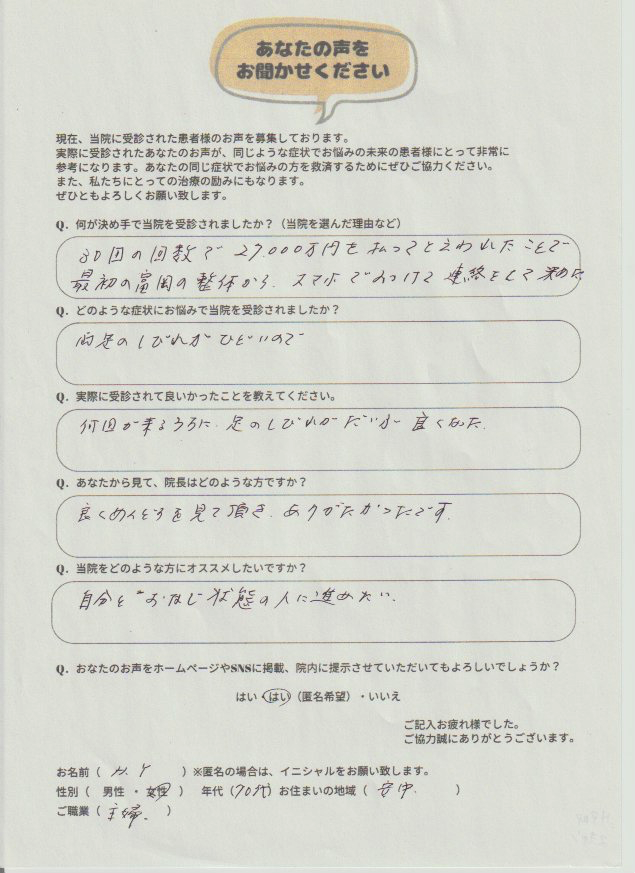 あなたの声を
お聞かせください
現在、当院に受診された患者様のお声を募集しております。
実際に受診されたあなたのお声が、同じような症状でお悩みの未来の患者様にとって非常に
参考になります。あなたの同じ症状でお悩みの方を救済するためにぜひご協力ください。
また、私たちにとっての治療の励みにもなります。
ぜひともよろしくお願い致します。
Q. 何が決め手で当院を受診されましたか？（当院を選んだ理由など）
30回の回数で 27.000万円を払ってと言われたことで
最初の富岡の整体から、スマホでみつけて 連絡をして 決めた
Q. どのような症状にお悩みで当院を受診されましたか？
両足のしびれが ひどいので
Q. 実際に受診されて良いかったことを教えてください。
何回か来るうちに、足のしびれがだいぶ 良くなった.
Q. あなたから見て、院長はどのような方ですか？
良くめんどうを見て頂き、ありがたかったです.
Q. 当院をどのような方にオススメしたいですか？
自分と おなじ状態の人に進めたい.
Q. おなたのお声をホームページやSNSに掲載、院内に提示させていただいてもよろしいでしょうか？
はい・はい（匿名希望）・いいえ
ご記入お疲れ様でした。
ご協力誠にありがとうございます。
お名前（ H. Y ）※匿名の場合は、イニシャルをお願い致します。
性別（ 男性 ・ 女性 ） 年代（70代）お住まいの地域（ 安中. ）
ご職業（ 主婦. ）